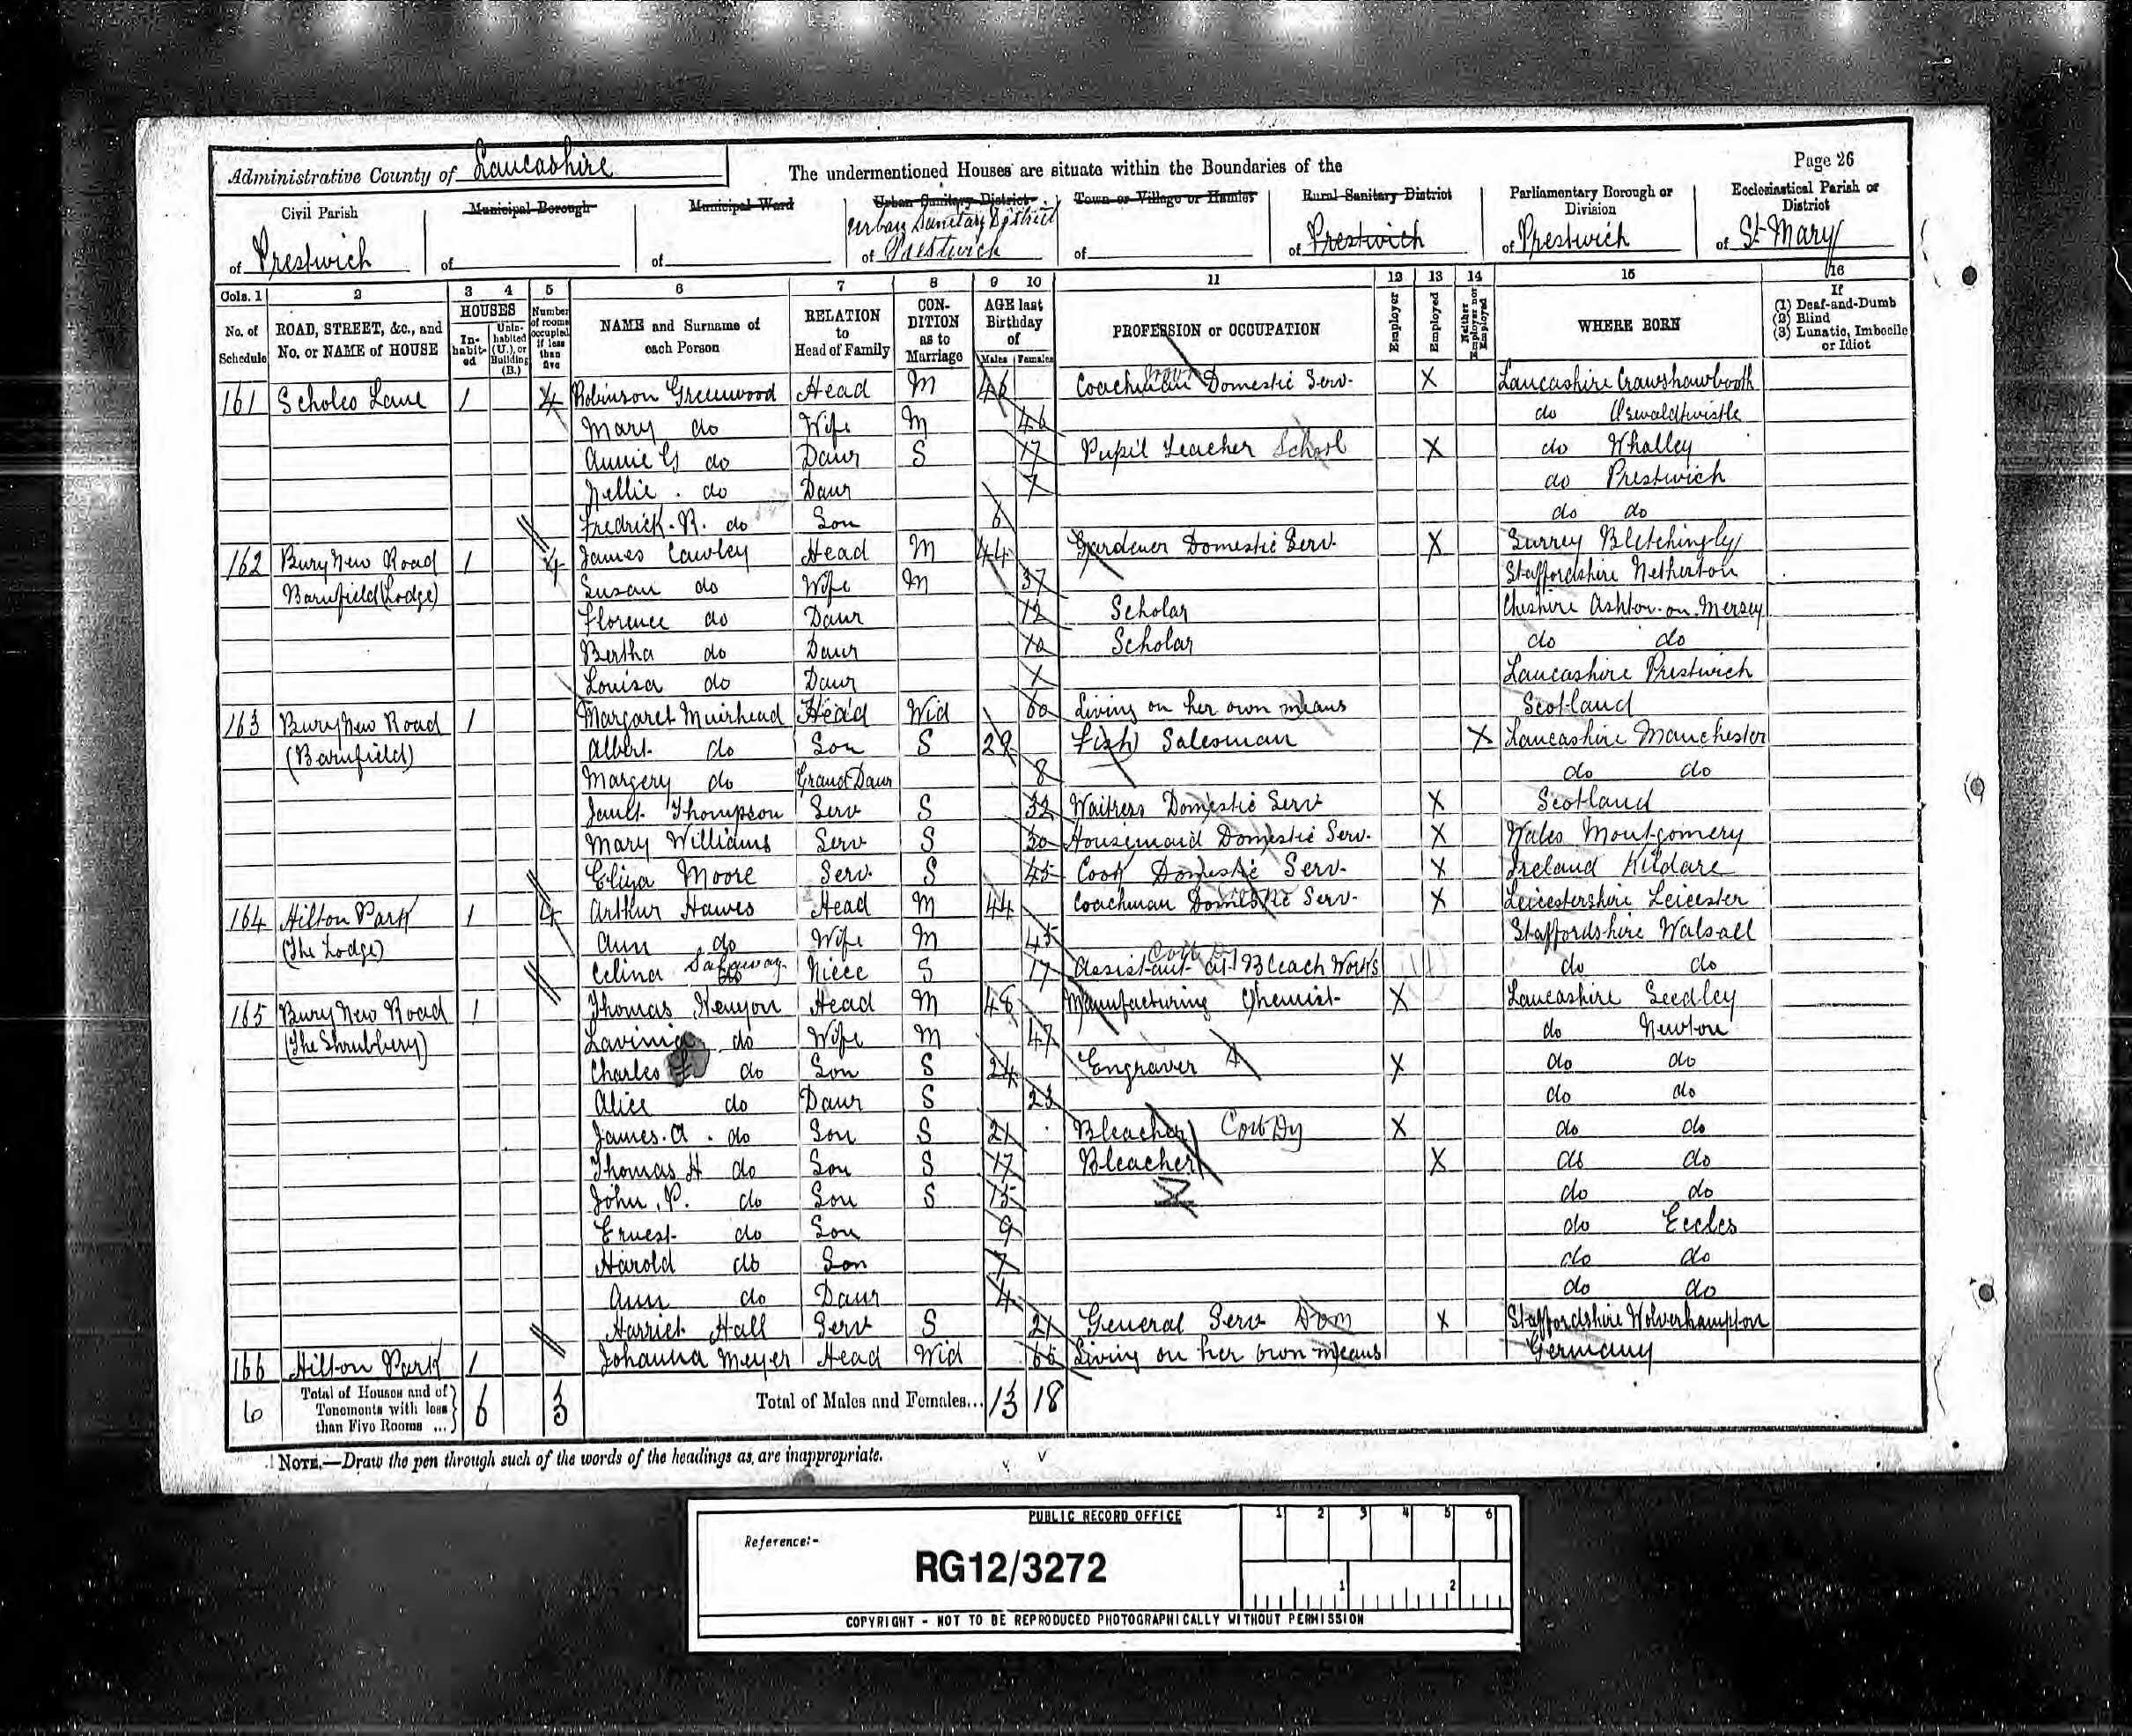 Administrative County of Lancashire The undermentioned Houses are situate within the Boundaries of the Page 26
Civil Parish Municipal Borough Municipal Ward Urban Sanitary District Town or Village or Hamlet Rural Sanitary District Parliamentary Borough or Division Ecclesiastical Parish or District
Urban Sanitary District
of Prestwich of of of Prestwich of of Prestwich of Prestwich of St. Mary
Cols. 1 2 3 4 5 6 7 8 9 10 11 12 13 14 15 16
No. of Schedule ROAD, STREET, &c., and No. or NAME of HOUSE HOUSES In-habit-ed Unin-habited (U.), or Building (B.) Number of rooms occupied if less than five NAME and Surname of each Person RELATION to Head of Family CON-DITION as to Marriage AGE last Birthday of Males Females PROFESSION or OCCUPATION Employer Employed Neither Employer nor Employed WHERE BORN If (1) Deaf-and-Dumb (2) Blind (3) Lunatic, Imbecile or Idiot
161 Scholes Lane 1 4 Robinson Greenwood Head M 46 Coachman Domestic Serv. X Lancashire Crawshawbooth
Mary do Wife M 46 do Oswaldtwistle
Annie G do Daur S 17 Pupil Teacher School X do Whalley
Nellie. do Daur 7 do Prestwich
Fredrick. R. do Son 6 do do
162 Bury New Road 1 4 James Cawley Head M 44 Gardener Domestic Serv. X Surrey Bletchingley
Barnfield (Lodge) Susan do Wife M 37 Staffordshire Netherton
Florence do Daur 12 Scholar Cheshire Ashton-on-Mersey
Bertha do Daur 10 Scholar do do
Louisa do Daur 1 Lancashire Prestwich
163 Bury New Road 1 Margaret Muirhead Head Wid 60 Living on her own means Scotland
(Barnfield) Albert do Son S 29 Fish Salesman X Lancashire Manchester
Margery do Grand Daur 8 do do
Janet Thompson Serv S 32 Waitress Domestic Serv X Scotland
Mary Williams Serv S 30 Housemaid Domestic Serv. X Wales Montgomery
Eliza Moore Serv. S 45 Cook Domestic Serv. X Ireland Kildare
164 Hilton Park 1 4 Arthur Hawes Head M 44 Coachman Domestic Serv. X Leicestershire Leicester
(The Lodge) Ann do Wife M 45 Staffordshire Walsall
Celina do Niece S 17 Assistant at Bleach Works do do
165 Bury New Road 1 Thomas Kenyon Head M 48 Manufacturing Chemist X Lancashire Seedley
(The Shrubbery) Lavinia do Wife M 47 do Newton
Charles do Son S 24 Engraver X do do
Alice do Daur S 23 do do
James. A. do Son S 21 Bleacher X do do
Thomas H do Son S 17 Bleacher X do do
John. P. do Son S 15 do do
Ernest do Son 9 do Eccles
Harold do Son 7 do do
Ann do Daur 4 do do
Harriet Hall Serv S 21 General Serv Dom X Staffordshire Wolverhampton
166 Hilton Park 1 Johanna Meyer Head Wid Living on her own means Germany
6 Total of Houses and of Tenements with less than Five Rooms ... 6 3 Total of Males and Females... 13 18
NOTE.—Draw the pen through such of the words of the headings as are inappropriate.
PUBLIC RECORD OFFICE
1 2 3 4 5 6
Reference:-
RG12/3272
1 2
COPYRIGHT - NOT TO BE REPRODUCED PHOTOGRAPHICALLY WITHOUT PERMISSION